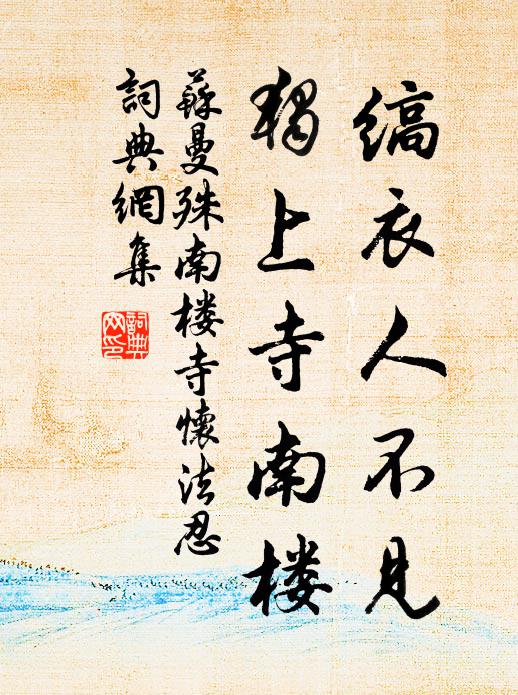 缟衣人不见
独上寺南楼
苏曼殊南楼寺怀法忍
词典网集
词典网印